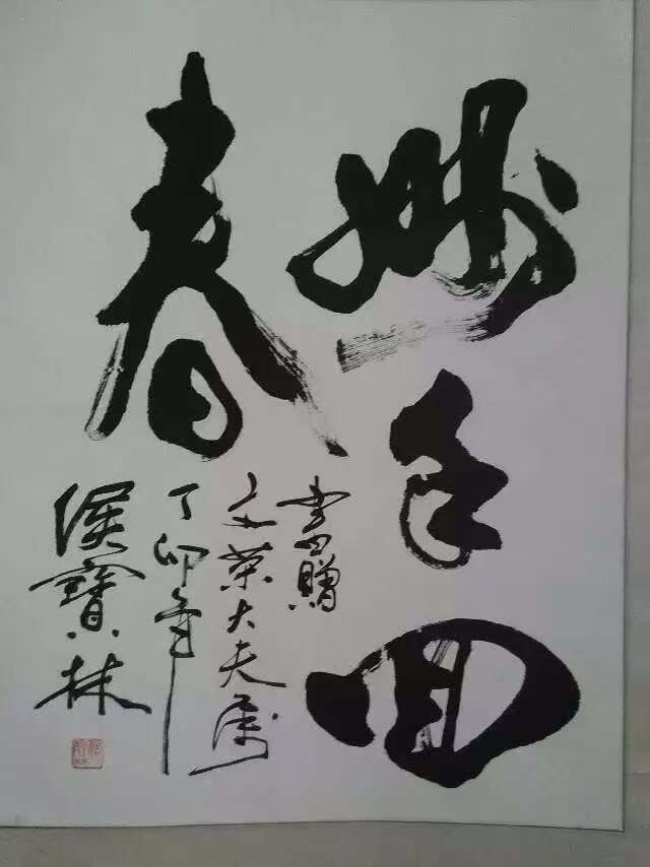 妙手回
春
書贈
文荣大夫屬
丁卯年
侯寶林